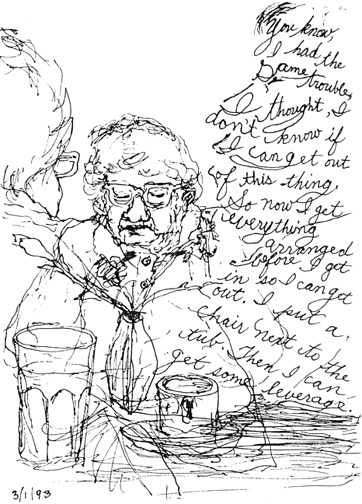 You know,
I had the
same trouble,
I thought, I
don't know if
I can get out
of this thing,
So now I get
everything
arranged
before I get
in so I can get
out. I put a
chair next to the
tub. Then I can
get some leverage.
3/1/93